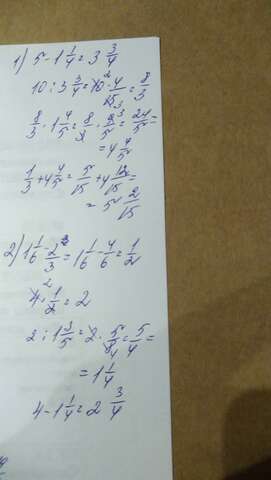 1) 5 - 1 1/4 = 3 3/4
10 : 3 3/4 = 10 · 4/15 = 8/3
8/3 · 1 4/5 = 8/3 · 9/5 = 24/5 =
= 4 4/5
1/3 + 4 4/5 = 5/15 + 4 12/15 =
= 5 2/15
2) 1 1/6 - 2/3 = 1 1/6 - 4/6 = 1/2
4 · 1/2 = 2
2 : 1 3/5 = 2 · 5/8 = 5/4 =
= 1 1/4
4 - 1 1/4 = 2 3/4